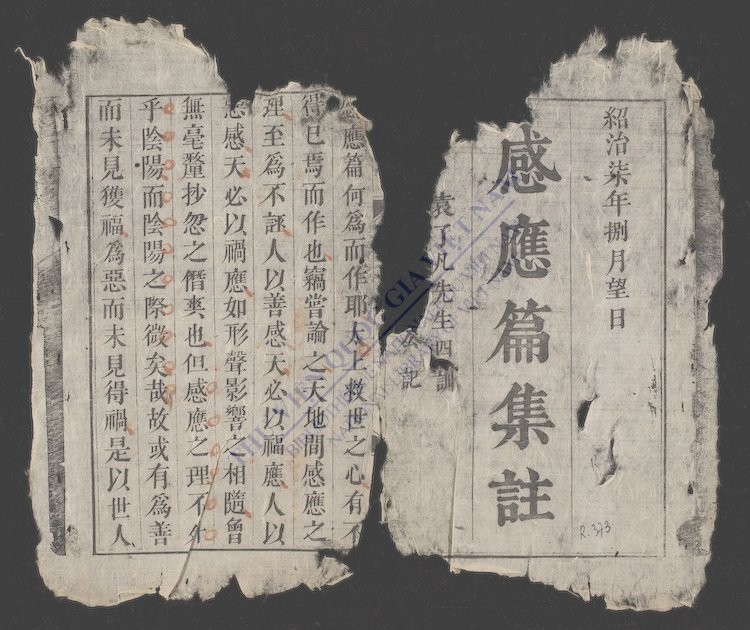 紹治柒年捌月望日
感應篇集註
袁了凡先生四訓
記
R.373
應篇何為而作耶太上救世之心有不
得已焉而作也竊嘗論之天地間感應之
理至為不誣人以善感天必以福應人以
惡感天必以禍應如形聲影響之相隨曾
無毫釐抄忽之僭爽也但感應之理不外
乎陰陽而陰陽之際微矣哉故或有為善
而未見獲福為惡而未見得禍是以世人
THƯ VIỆN QUỐC GIA VIỆT NAM